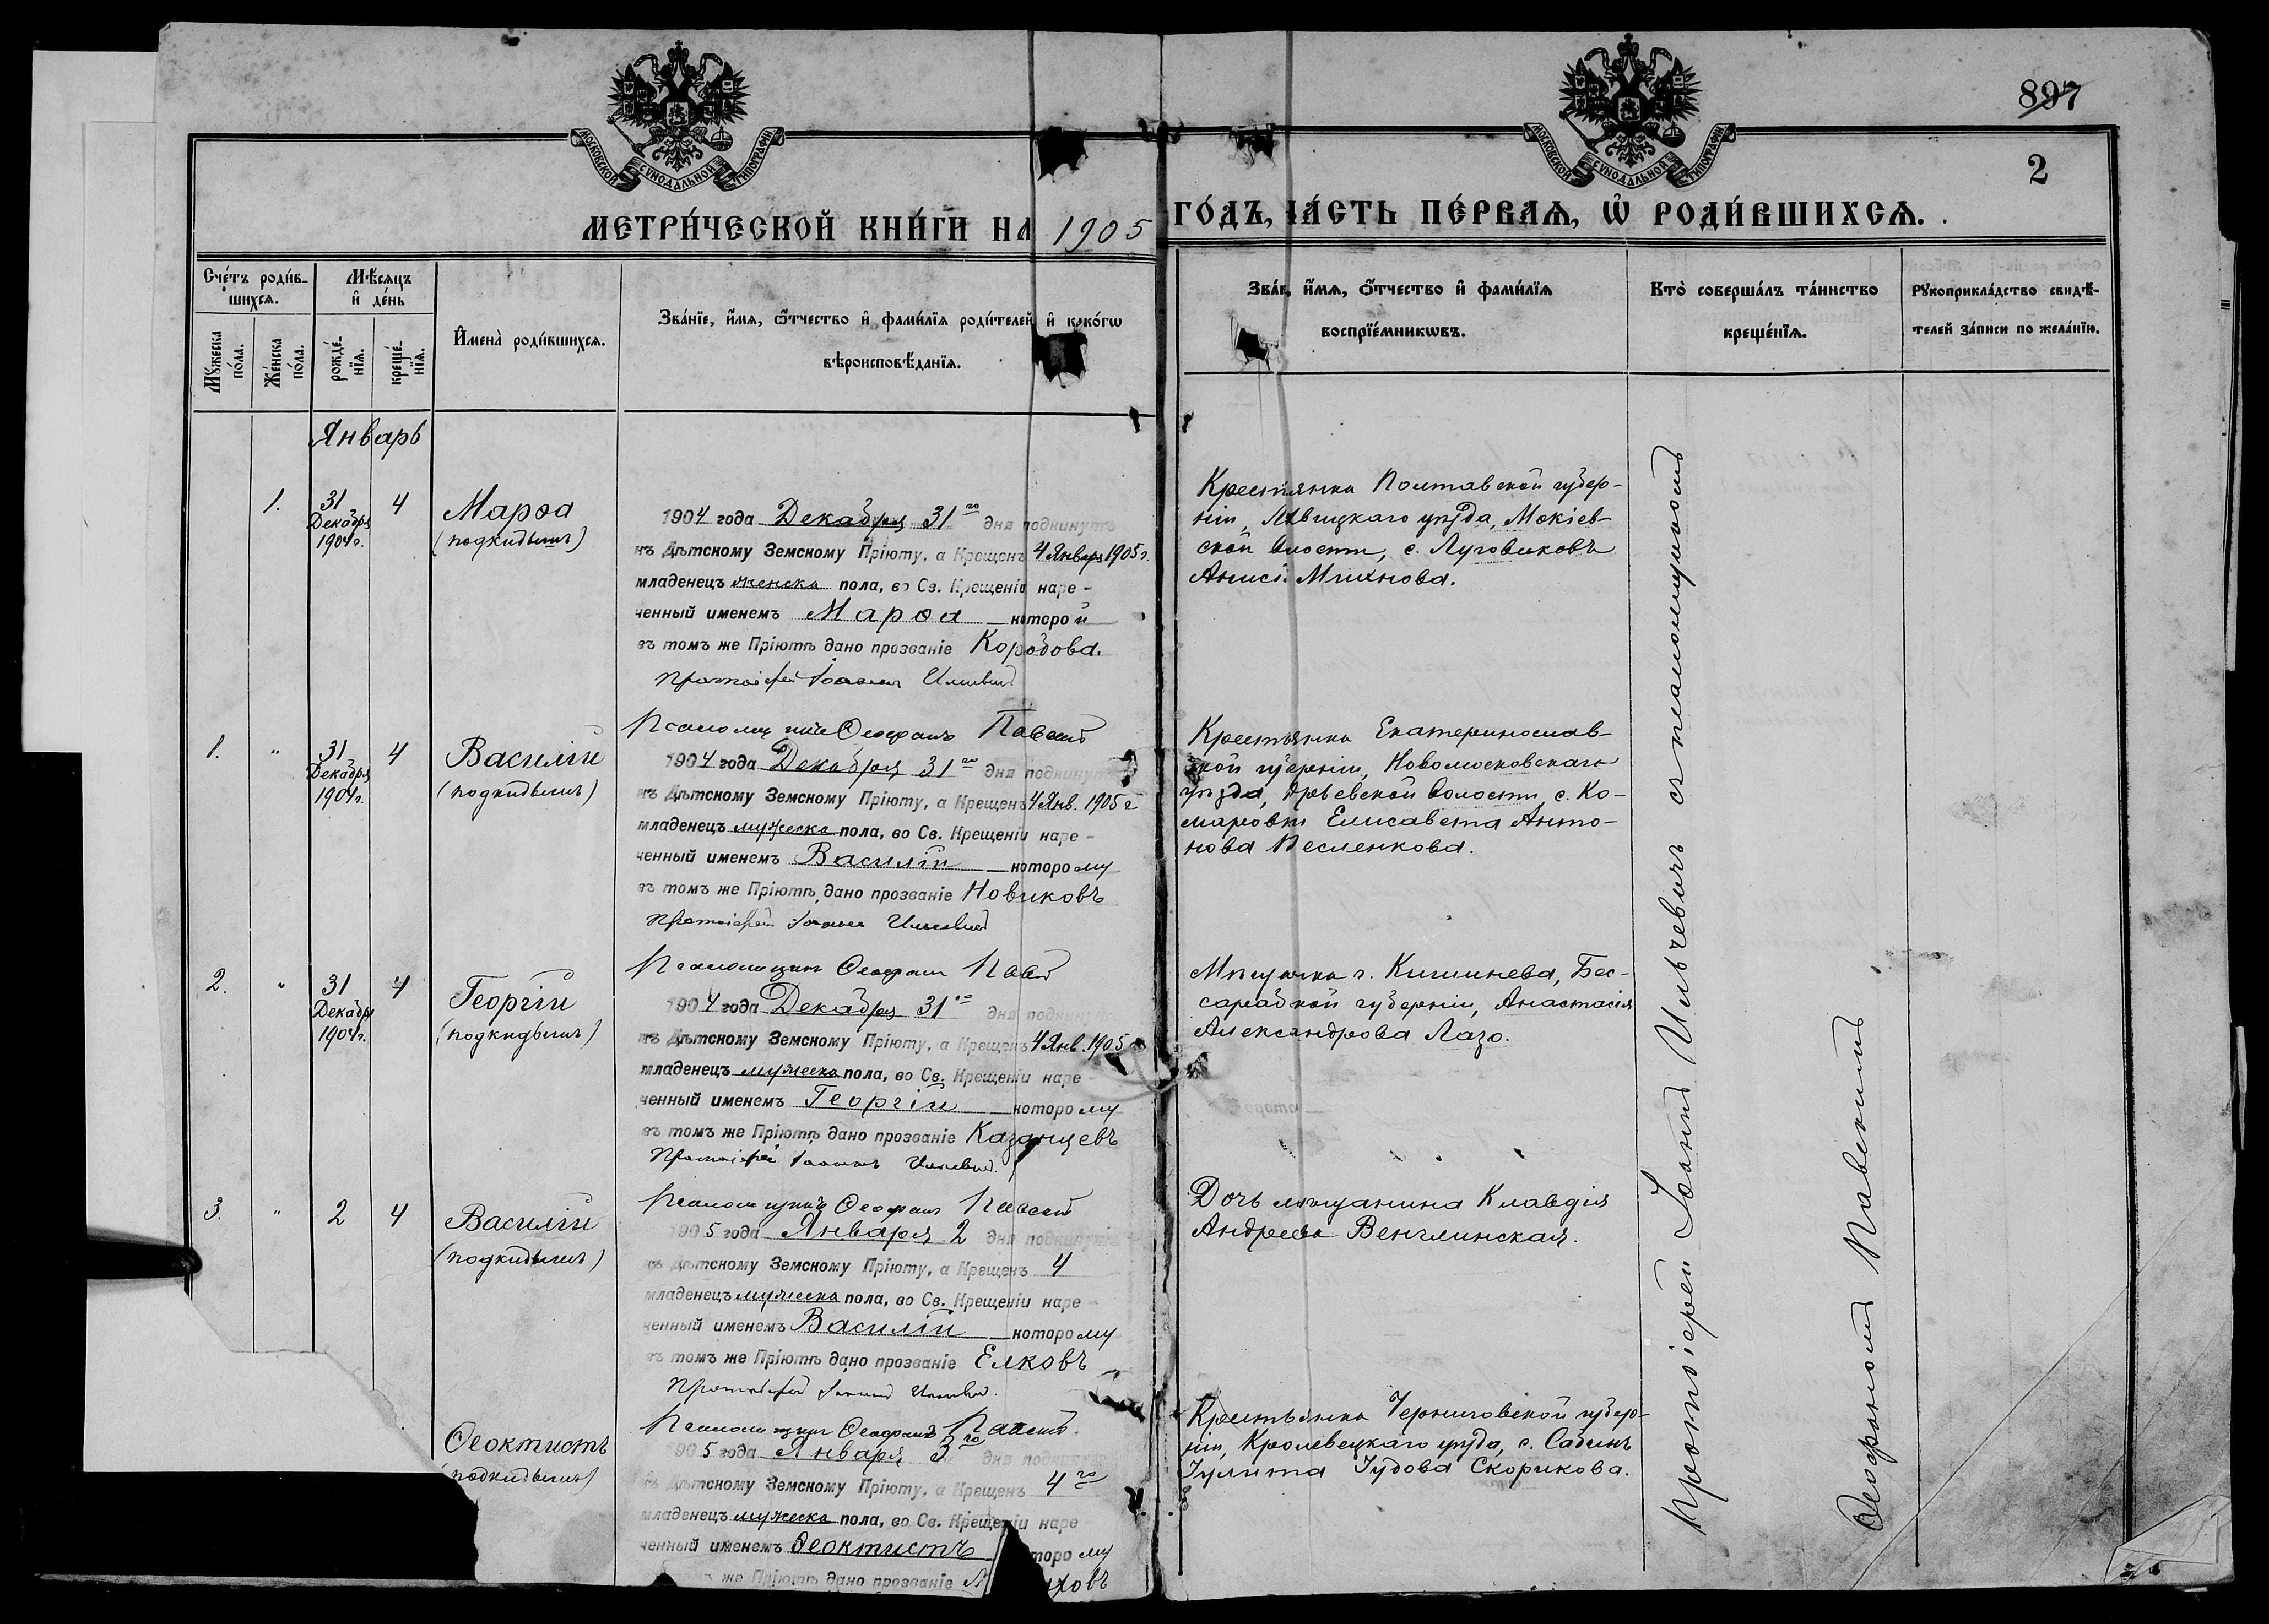 МОСКОВСКОЙ СѴНОДАЛЬНОЙ ТИПОГРАФІИ
МОСКОВСКОЙ СѴНОДАЛЬНОЙ ТИПОГРАФІИ
897
2
МЕТРИ́ЧЕСКОЙ КНИ́ГИ НА 1905 ГО́ДЪ, ЧА́СТЬ ПЕ́РВАѦ, Ѡ҆ РОДИ́ВШИХСѦ.
Сче́тъ роди́в-
шихсѧ.
Мѣ́сѧцъ
и҆ де́нь
Мꙋ́жеска
по́ла.
Же́нска
по́ла.
рожде́-
нїѧ.
креще́-
нїѧ.
И҆мена̀ роди́вшихсѧ.
Зва́нїе, и҆́мѧ, ѻ҆́тчество и҆ фами́лїѧ роди́телей и҆ како́гѡ
вѣроисповѣ́данїѧ.
Зва́нїе, и҆́мѧ, ѻ҆́тчество и҆ фами́лїѧ
воспрїе́мникѡвъ.
Кто̀ соверша́лъ та́инство
креще́нїѧ.
Рꙋкоприкла́дство свидѣ́-
телей за́писи по жела́нїю.
Январь
1.
31
Декабря
1904 г.
4
Марѳа
(подкидышъ)
1904 года Декабря 31го дня подкинутъ
къ Дѣтскому Земскому Пріюту, а Крещенъ 4 Января 1905 г.
младенецъ женска пола, во Св. Крещеніи наре-
ченный именемъ Марѳа которой
въ томъ же Пріютѣ дано прозваніе Коробова.
Протоіерей Іоаннъ
Крестьянка Полтавской губер-
ніи, уѣзда, Мокіев-
ской волости, с. Луговиковъ
Псаломщикъ Ѳеофанъ
1.
"
31
Декабря
1904 г.
4
Василій
(подкидышъ)
1904 года Декабря 31го дня подкинутъ
къ Дѣтскому Земскому Пріюту, а Крещенъ 4 Янв. 1905 г.
младенецъ мужеска пола, во Св. Крещеніи наре-
ченный именемъ Василій которому
въ томъ же Пріютѣ дано прозваніе Новиковъ
Протоіерей Іоаннъ
Крестьянка Екатеринослав-
ской губерніи, Новомосковскаго
уѣзда, волости, с. Ко-
маровки Елисавета Анто-
нова Песленкова.
Псаломщикъ Ѳеофанъ
2.
"
31
Декабря
1904 г.
4
Георгій
(подкидышъ)
1904 года Декабря 31го дня подкинутъ
къ Дѣтскому Земскому Пріюту, а Крещенъ 4 Янв. 1905
младенецъ мужеска пола, во Св. Крещеніи наре-
ченный именемъ Георгій которому
въ томъ же Пріютѣ дано прозваніе Казанцевъ
Протоіерей Іоаннъ
Мѣщанка г. Кишинева, Бес-
сарабской губерніи, Анастасія
Александрова Лазо.
Псаломщикъ Ѳеофанъ
3.
"
2
4
Василій
(подкидышъ)
1905 года Января 2 дня подкинутъ
къ Дѣтскому Земскому Пріюту, а Крещенъ 4
младенецъ мужеска пола, во Св. Крещеніи наре-
ченный именемъ Василій которому
въ томъ же Пріютѣ дано прозваніе Елковъ
Протоіерей Іоаннъ
Дочь мѣщанина Клавдія
Андреева Венглинская.
Псаломщикъ Ѳеофанъ
Ѳеоктистъ
(подкидышъ)
1905 года Января 3го дня подкинутъ
къ Дѣтскому Земскому Пріюту, а Крещенъ 4го
младенецъ мужеска пола, во Св. Крещеніи наре
ченный именемъ Ѳеоктистъ которому
же Пріютѣ дано прозваніе
Крестьянка Черниговской губер-
ніи, Кролевецкаго уѣзда, с. Сабинъ
Іулита Іудова Скорикова.
Протоіерей Іоаннъ Ильчевичъ съ псаломщикомъ
Ѳеофаномъ Павскимъ